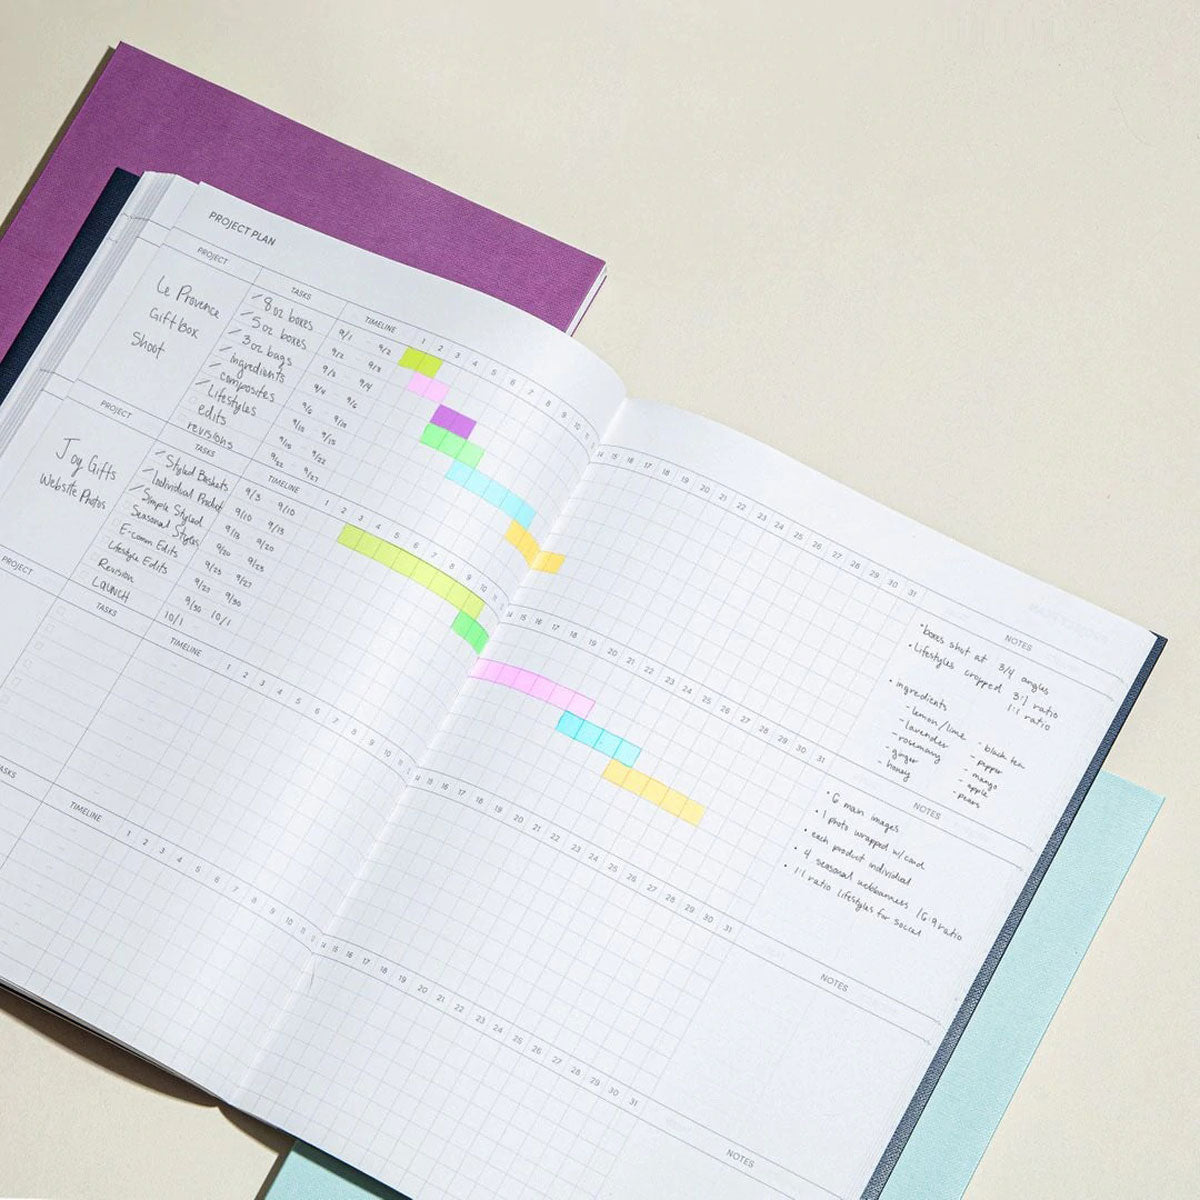 PROJECT PLAN
PROJECT TASKS TIMELINE 1 2 3 4 5 6 7 8 9 10 11
14 15 16 17 18 19 20 21 22 23 24 25 26 27 28 29 30 31 NOTES
Le Provence
Gift Box
Shoot
8 oz boxes 9/1 9/2
5 oz boxes 9/2 9/3
3 oz bags 9/3 9/4
ingredients 9/4 9/6
composites 9/6 9/10
Lifestyles 9/10 9/15
edits 9/15 9/22
revisions 9/22 9/27
• boxes shot at 3/4 angles
• Lifestyles cropped 3:1 ratio
1:1 ratio
• ingredients
- lemon/lime - black tea
- lavender - pepper
- rosemary - mango
- ginger - apple
- honey - pears
PROJECT TASKS TIMELINE 1 2 3 4 5 6 7 8 9 10 11
14 15 16 17 18 19 20 21 22 23 24 25 26 27 28 29 30 31 NOTES
Joy Gifts
Website Photos
Styled Baskets 9/3 9/10
Individual Product 9/10 9/13
Simple Styled 9/13 9/20
Seasonal Styles 9/20 9/23
E-comm Edits 9/23 9/27
Lifestyle Edits 9/27 9/30
Revision 9/30 10/1
LAUNCH 10/1
• 6 main images
• 1 photo wrapped w/card
• each product individual
• 4 seasonal webbanners 16:9 ratio
• 1:1 ratio lifestyles for social
PROJECT TASKS TIMELINE 1 2 3 4 5 6 7 8 9 10 11
14 15 16 17 18 19 20 21 22 23 24 25 26 27 28 29 30 31 NOTES
TASKS TIMELINE 1 2 3 4 5 6 7 8 9 10 11
14 15 16 17 18 19 20 21 22 23 24 25 26 27 28 29 30 31 NOTES